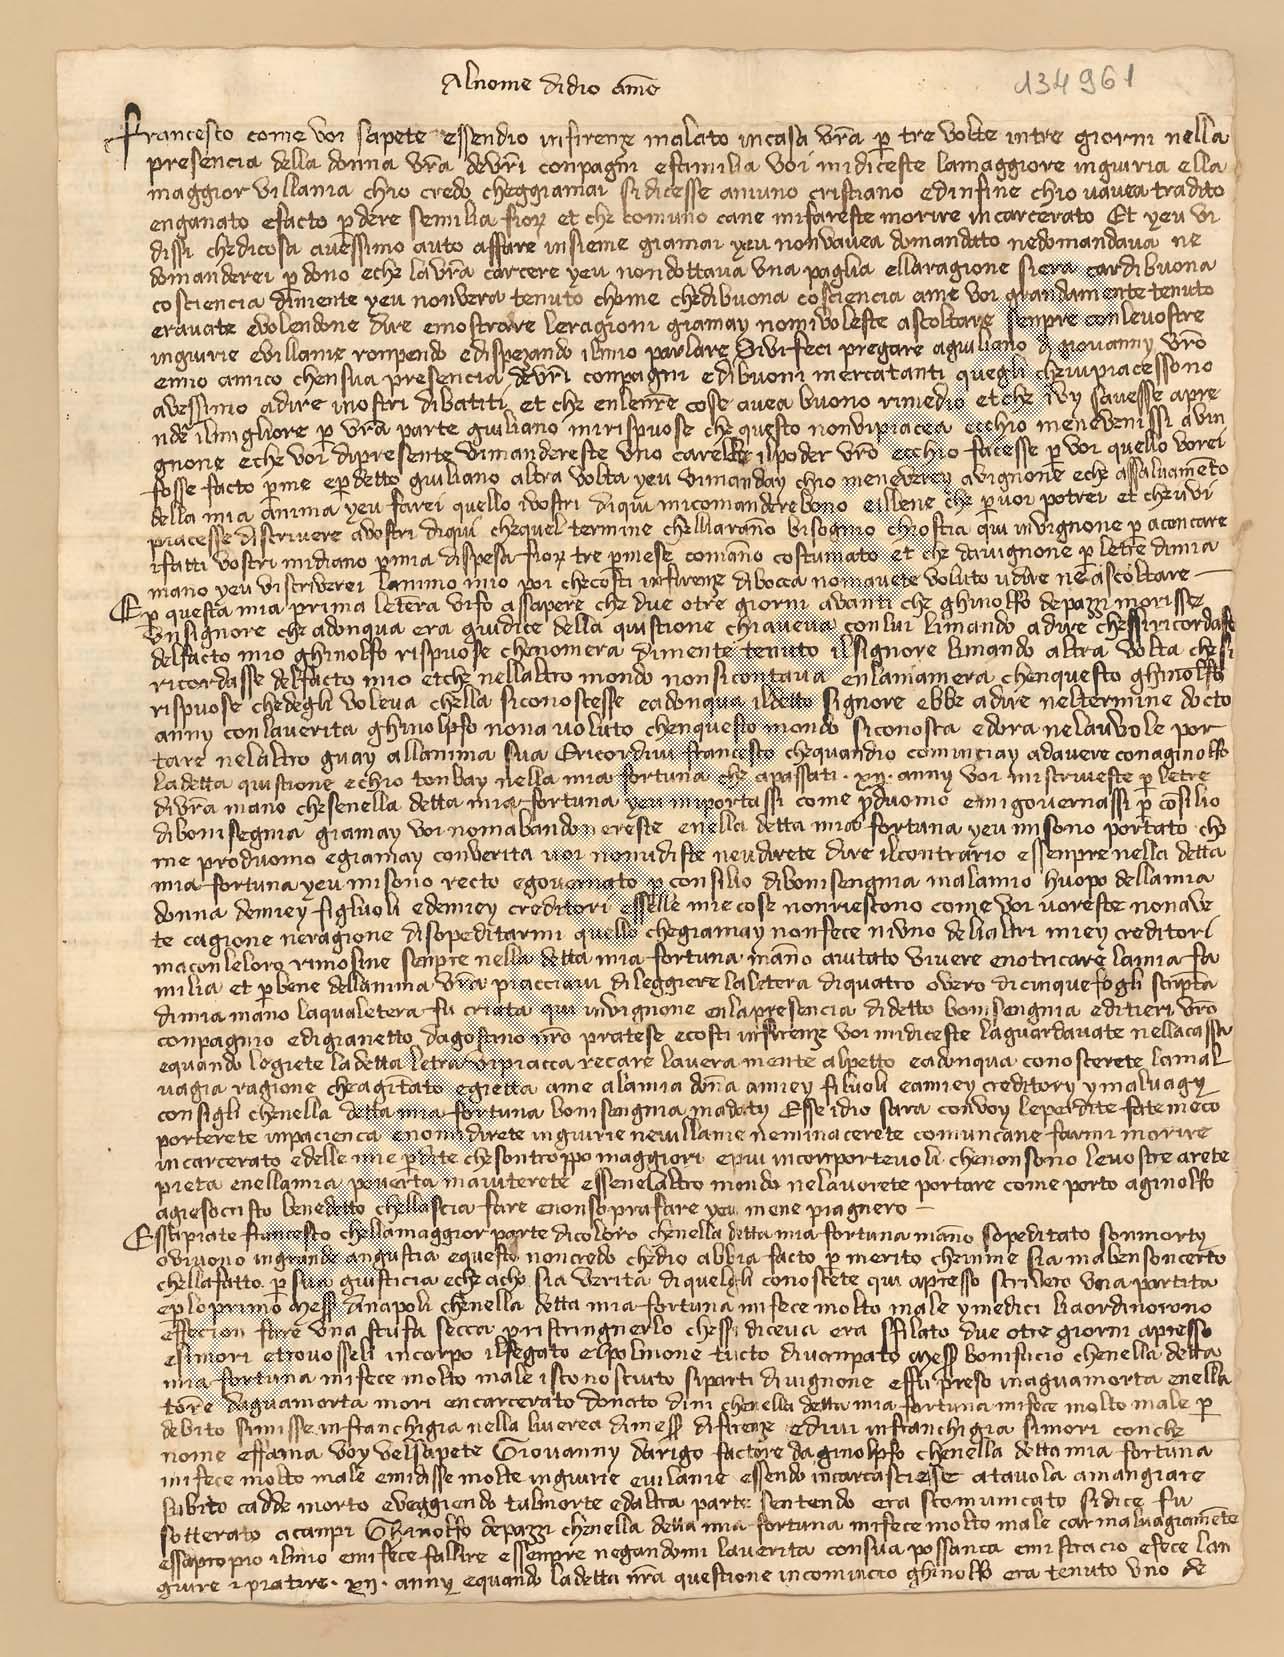 Al nome di dio ame
134961
Francesco come voi sapete essendio infirenze malato incasa vra p tre volte intre giorni nella
presencia della donna vra devri conpagni efamilia voi midiceste lamaggiore ingiuria ella
maggior villania chio credo cheggiamai sidicesse aniuno cristiano edinfine chio vavea tradito
enganato efacto pdere semilia fior et che comuno cane mifareste morire incarcerato Et yeu vi
dissi chedicosa avessimo auto affare insieme giamai yeu nonvavea domandato nedomandava ne
domanderei pdono eche lavra carcere yeu nondottava una paglia ellaragione siera cardibuona
cosciencia dimente yeu nonvera tenuto chome chedibuona cosciencia ame voi grandamente tenuto
eravate evolendone dire emostrare leragioni giamay nomivoleste ascoltare senpre conlevostre
ingiurie evillanie ronpendo edispezando ilmio parlare Sivifeci pregare agiuliano di giovanny vro
emio amico chensua presencia devri conpagni edibuoni mercatanti quegli chevipiacessono
avessimo adire inostri dibatiti et che enlenre cose avea buono rimedio etche ivy savesse apre
nde ilmigliore p vra parte giuliano mirispuose che questo nonvipiacea ecchio menevenissi avin
gnone eche voi dipresente vimandereste uno carello ilpoder vro ecchio facesse p voi quello vorei
fosse facto pme epdetto giuliano altra volta yeu vimanday chio meneverey avignone eche assalvameto
della mia anima yeu farei quello ivostri diqui micomanderebono eillene che pvoi potrei et chevvi
piacesse discrivere avostri diqui chequel termine chelliarano bisogno chiostia qui invignone p aconcare
ifatti vostri midiano pmia dispesa fior tre pmese comano costumato et che davignone p letre dimia
mano yeu viscriverei lanimo mio poi checosti infirenze dibocca nomavete voluto udire ne ascoltare
Ep questa mia prima letera vifo assapere che due otre giorni avanti che ghinolfo depazzi morisse
unsignore che adonqua era giudice della quistione chiaveva conlui limando adire chessiricordasse
delfacto mio ghinolfo rispuose chenomera dimente tenuto ilsignore limando altra volta chesi
ricordasse delfacto mio etche nellaltro mondo nonsicontava enlamamera chenquesto ghinolfo
rispuose chedegli voleva chella siconostesse eadonqua ildetto signore ebbe adire neltermine docto
anny conlaverita ghinolfo nona voluto chenquesto mondo siconosca edora nelauvole por
tare nelaltro guay allanima sua Ericordivi francesco chequandio cominciay adavere conaginolfo
ladetta quistione echio tonbay nella mia fortuna che apassati xii anny voi miscriveste p letre
divra mano chesenella detta mia fortuna yeu miportassi come pduomo emigovernassi p cosilio
dibonisegnia giamay voi nomabandonereste enella detta mia fortuna yeu misono portato cho
me produomo egiamay converita voi nomudiste neudirete dire ilcontrario essenpre nella detta
mia fortuna yeu misono recto egovernato p consilio dibonisengnia malamio huopo dellamia
donna demiey figluoli edemiey creditori esselle mie cose nonriescono come voi voreste nonave
te cagione neragione disopeditarmi quello chegiamay nonfece niuno deliatri miey creditori
maconleloro rimosine senpre nella detta mia fortuna mano aiutato vivere enotricare lamia fa
milia et pbene dellanima vra piacciavi dileggiere laletera diquatro overo dicinquefogli scripta
dimia mano laqualetera fu criata qui invignone enlapresencia didetto bonisengnia editieri vro
conpagnio edigianetto dagostino nro pratese ecosti infirenze voi midiceste laguardavate nellacassa
equando legiete ladetta letra vipiacca recare lavera mente alpetto eadonqua conoscerete lamal
vagia ragione cheagitato egietta ame alamia dona amiey filuoli eamiey creditory ymalvagy
consigli chenella detta mia fortuna bonisengnia madaty Esseidio sara convoy leperdite fatemeco
porterete inpacienca enomidirete ingiurie nevillanie neminacerete comuncane farmi morire
incarcerato edelle mie pdite chesontroppo maggiori epiu inconportevoli chenonsono levostre arete
pieta enellamia poverta maiuterete essenelaltro mondo nelavorete portare come porto aginolfo
agiesocristo benedetto chellascia fare enonsoprafare yeu mene piagnero
Essapiate francesco chellamaggior parte dicoloro chenella detta mia fortuna mano sopeditato sonmorty
ovivono ingrande angustia equesto noncredo chedio abbia facto p merito cheinme sia mabensoncerto
chellafatto p sua giusticia eche acho sia verita diquelgli conoscete qui apresso scrivero una partita
eploprimo Mess dinapoli chenella detta mia fortuna mifece molto male ymedici liaordinorono
effecion fare una stufa secca pristringnerlo chessi diceva era sfilato due otre giorni apresso
esimori etrovosseli incorpo ilfegato elpolmone tucto divanpato Mess bonifacio chenella detta
mia fortuna mifece molto male isconosciuto siparti divignone effu preso inaguamorta enella
torre daguamorta mori encarcerato donato dini chenella detta mia fortuna mifece molto male p
debito simisse infranchigia nella liverea dimess difirenze edivi infranchigia simori conche
nome effama voy velsapete Giovanny darigo factore daginolfo chenella detta mia fortuna
mifece molto male emidisse molte ingiurie evilanie essendo incarcasciese atavola amangiare
subito cadde morto eveggiendo talmorte edaltra parte sentendo era scomunicato sidice fu
sotterato acanpi Ghinolfo depazzi chenella detta mia fortuna mifece molto male carmalvagiamete
essapropio ilmio emifece fallire essenpre negandomi laverita consua possanca emistracio efece lan
guire ipiatire xii anny equando ladetta nra questione incomincio ghinolfo era tenuto uno de